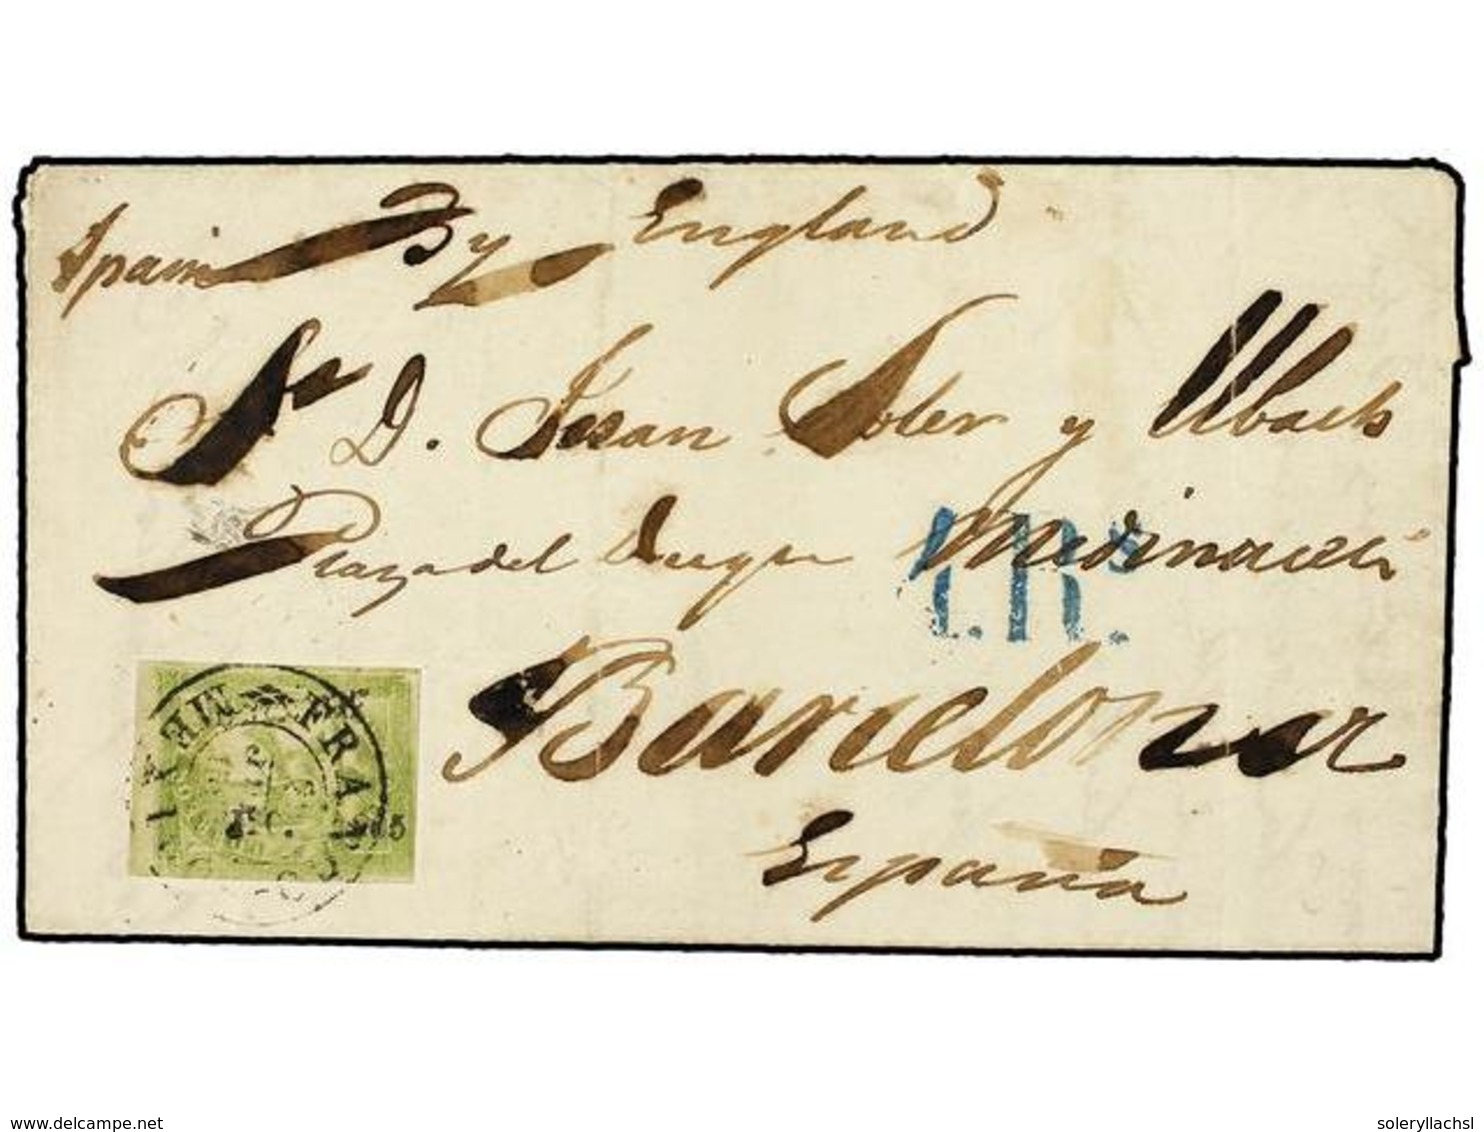 Spain By England
Sr D. Juan Soler y Ubach
Plaza del Duque Medinaceli
4.Rs.
Barcelona
España
FRANCO MEXICO
865
delcampe.net
soleryllachsl